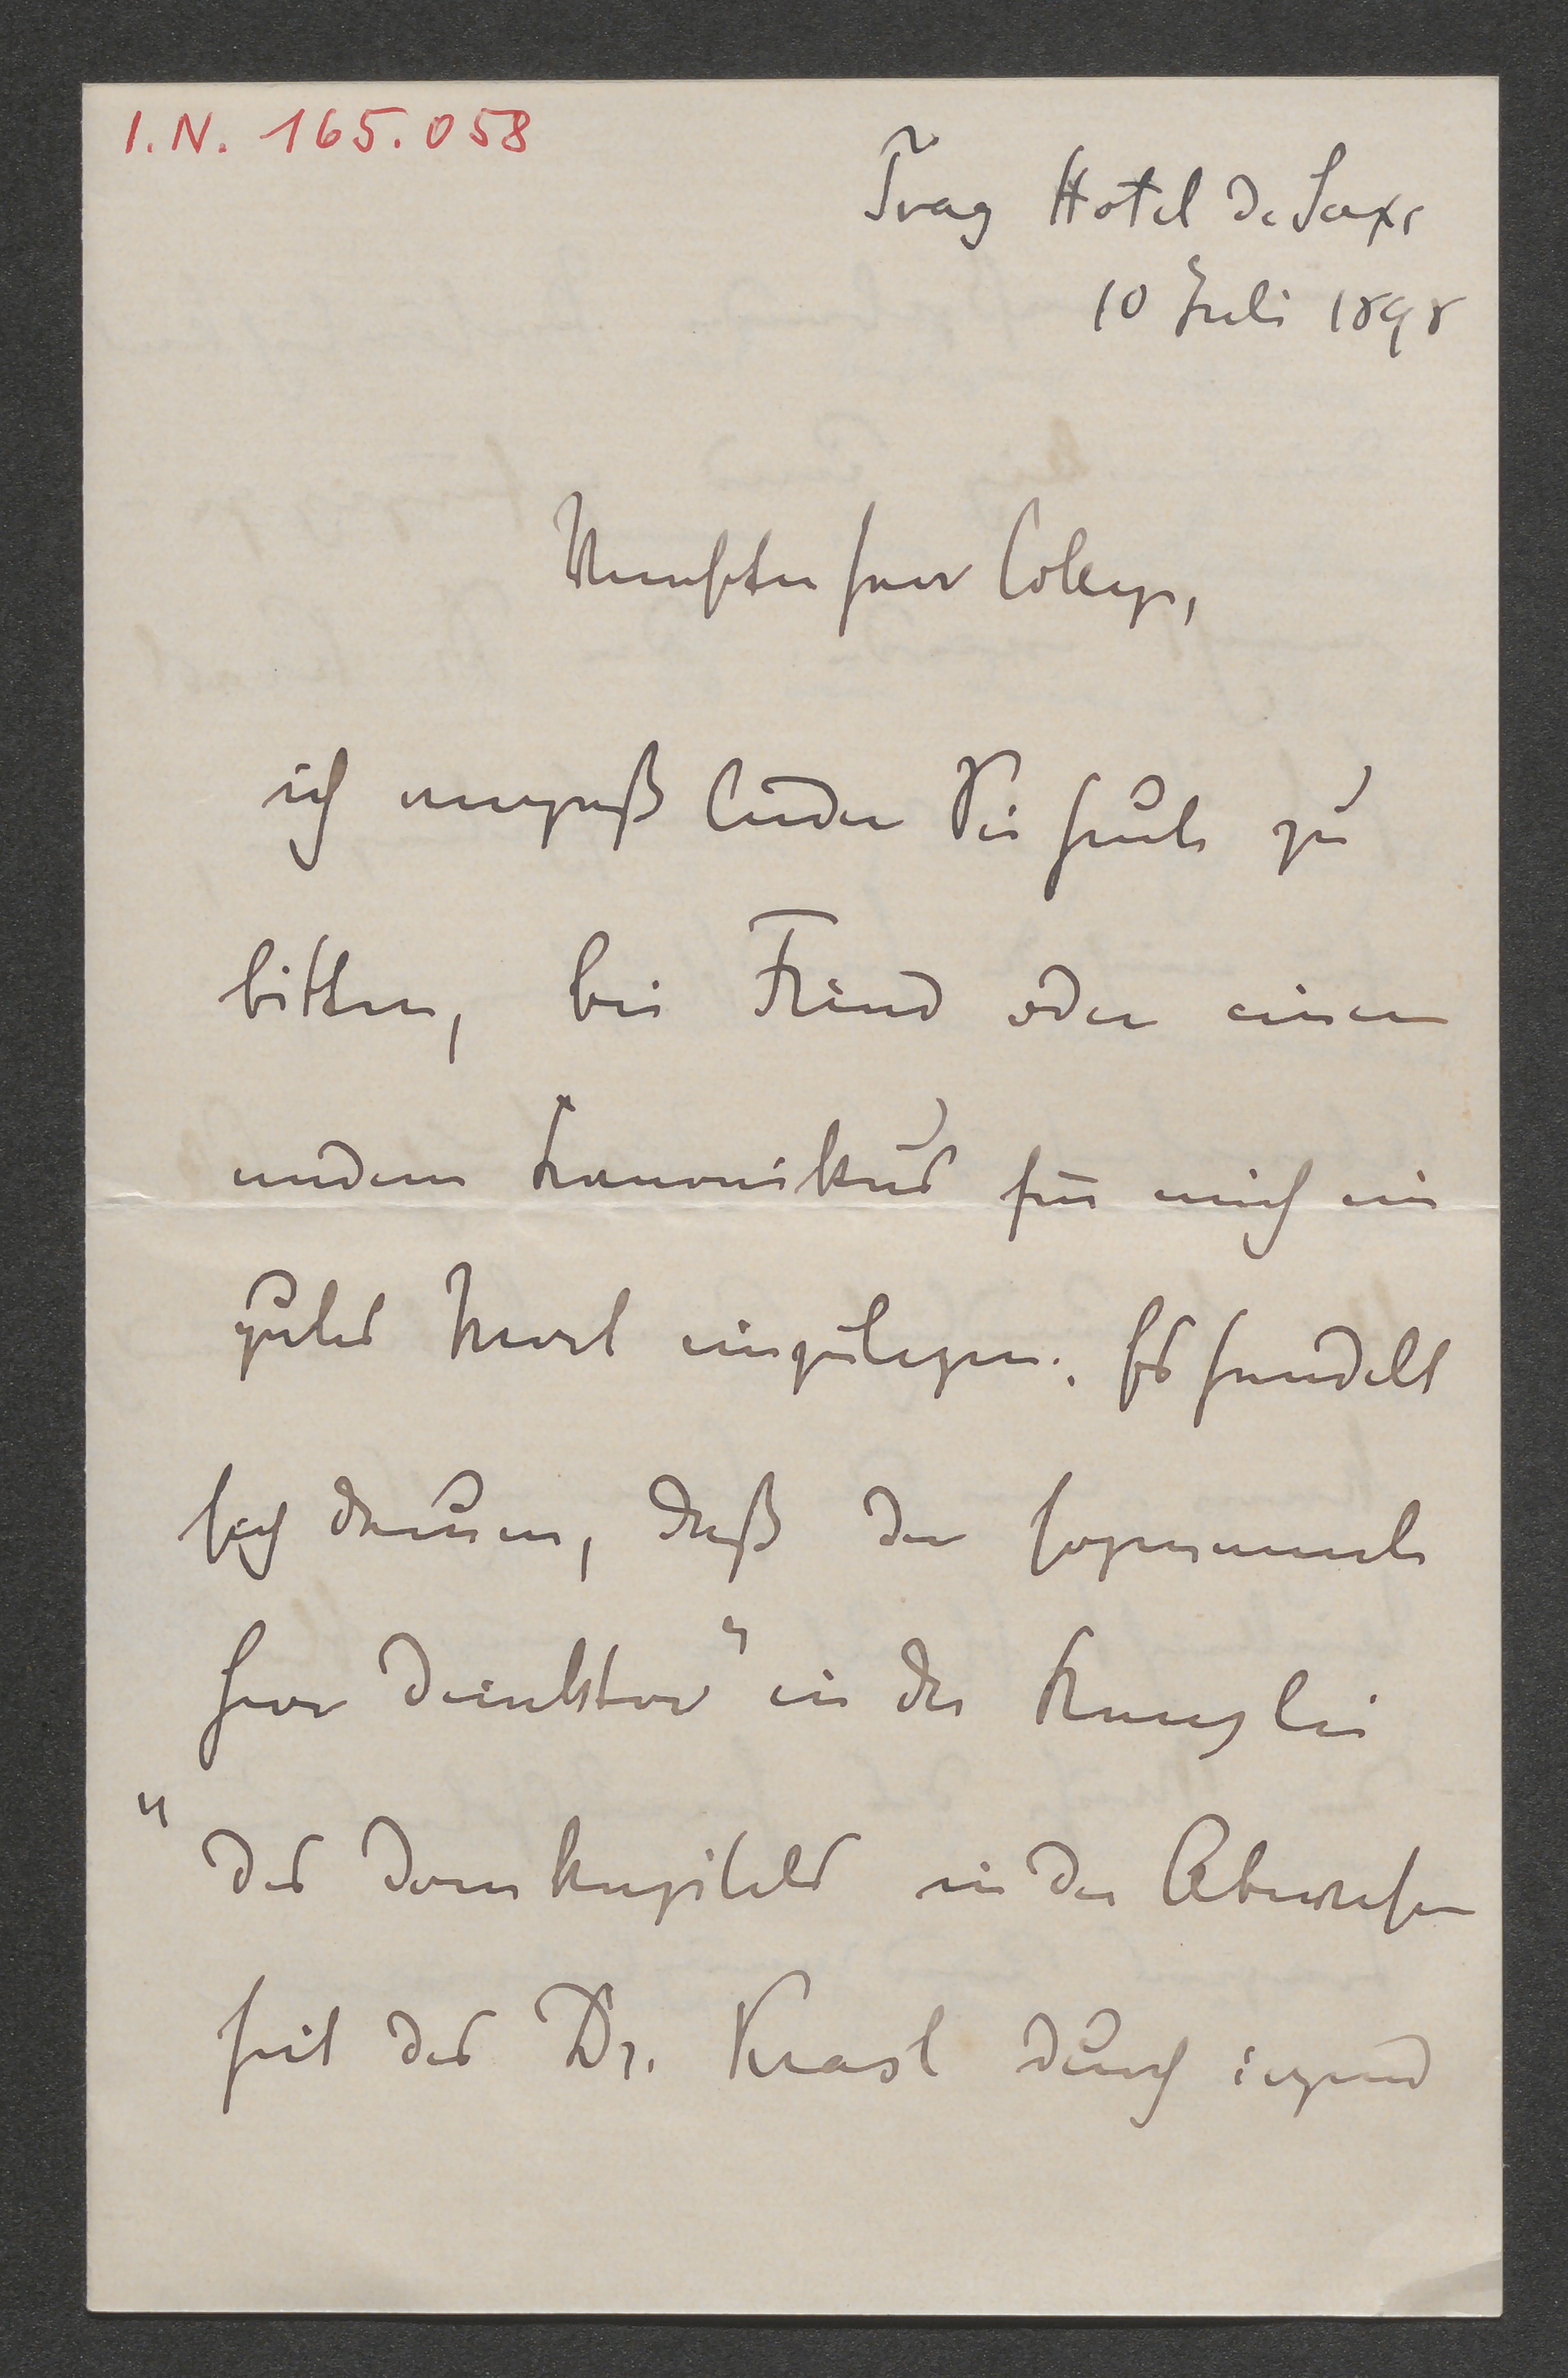 I.N. 165.058
Prag Hotel de Saxe
10 Juli 1898
Verehrter Herr College,
ich vergaß leider Sie heute zu
bitten, bei Frind oder einem
andern Kanonikus für mich ein
gutes Wort einzulegen. Es handelt
sich darum, daß der sogenannte
Herr Direktor" in der Kanzlei
"des Domkapitels in der Abwesen
heit des Dr. Krasl durch irgend